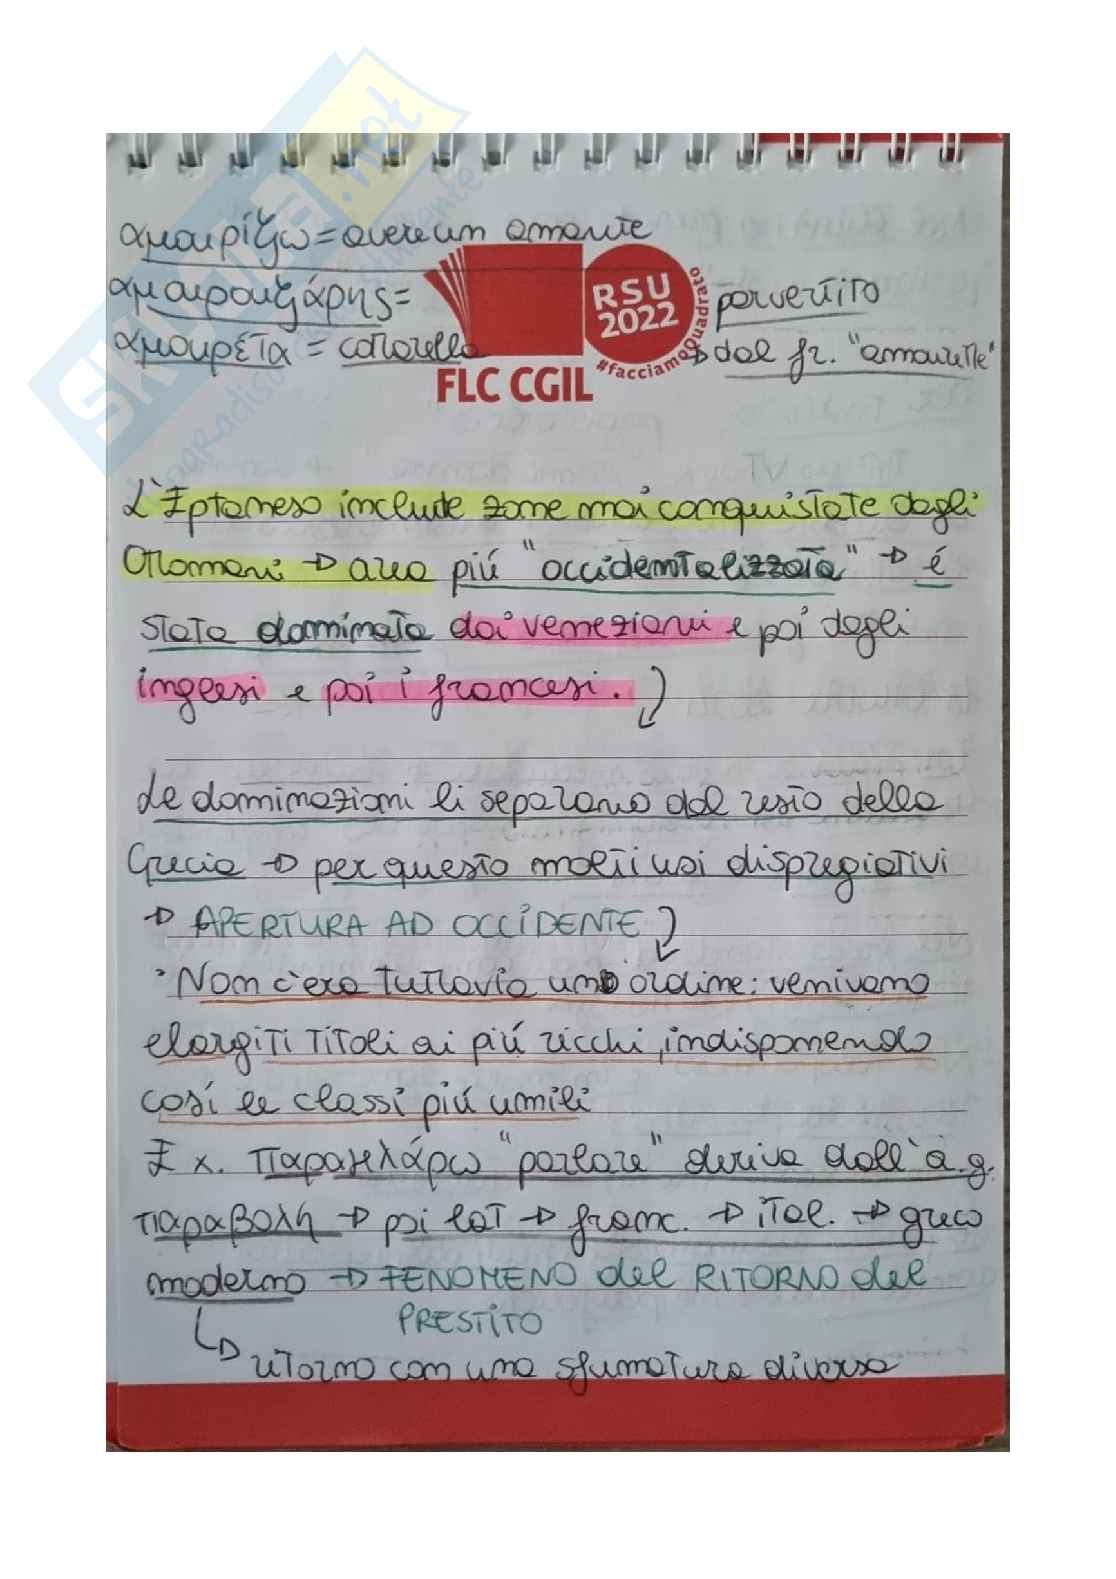 αμουρίζω = avere un amante
αμουρουζιάρης = pervertito
αμουρέτα = cotterella → dal fr. "amourette"
RSU
2022
#facciamoquadrato
FLC CGIL
L'Eptaneso include zone mai conquistate dagli
Ottomani → area più "occidentalizzata" → é
stata dominata dai veneziani e poi dagli
inglesi e poi i francesi.
Le dominazioni li separano dal resto della
Grecia → per questo molti usi dispregiativi
→ APERTURA AD OCCIDENTE
Non c'era tuttavia uno ordine: venivano
elargiti titoli ai più ricchi, indisponendo
così le classi più umili
Ex. παραμελάρω "parlare" deriva dall'a.g.
παραβολή → poi lat → franc. → ital. → greco
moderno → FENOMENO del RITORNO del
PRESTITO
↳ ritorno con una sfumatura diversa
skuola.net